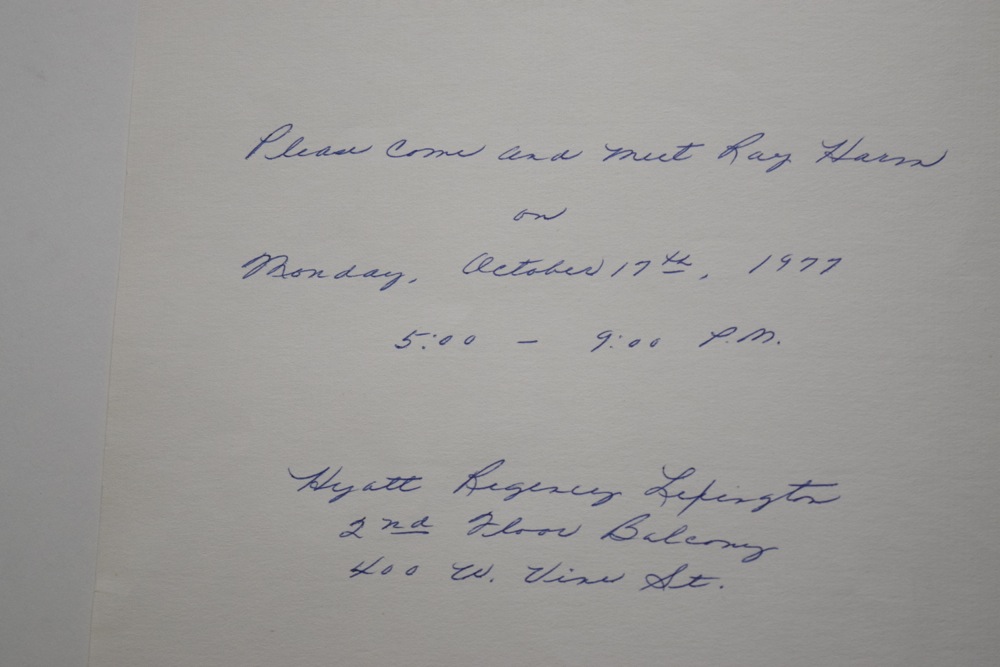 Please come and meet Ray Harm
on
Monday, October 17th, 1977
5:00 - 9:00 P.M.
Hyatt Regency Lexington
2nd Floor Balcony
400 W. Vine St.